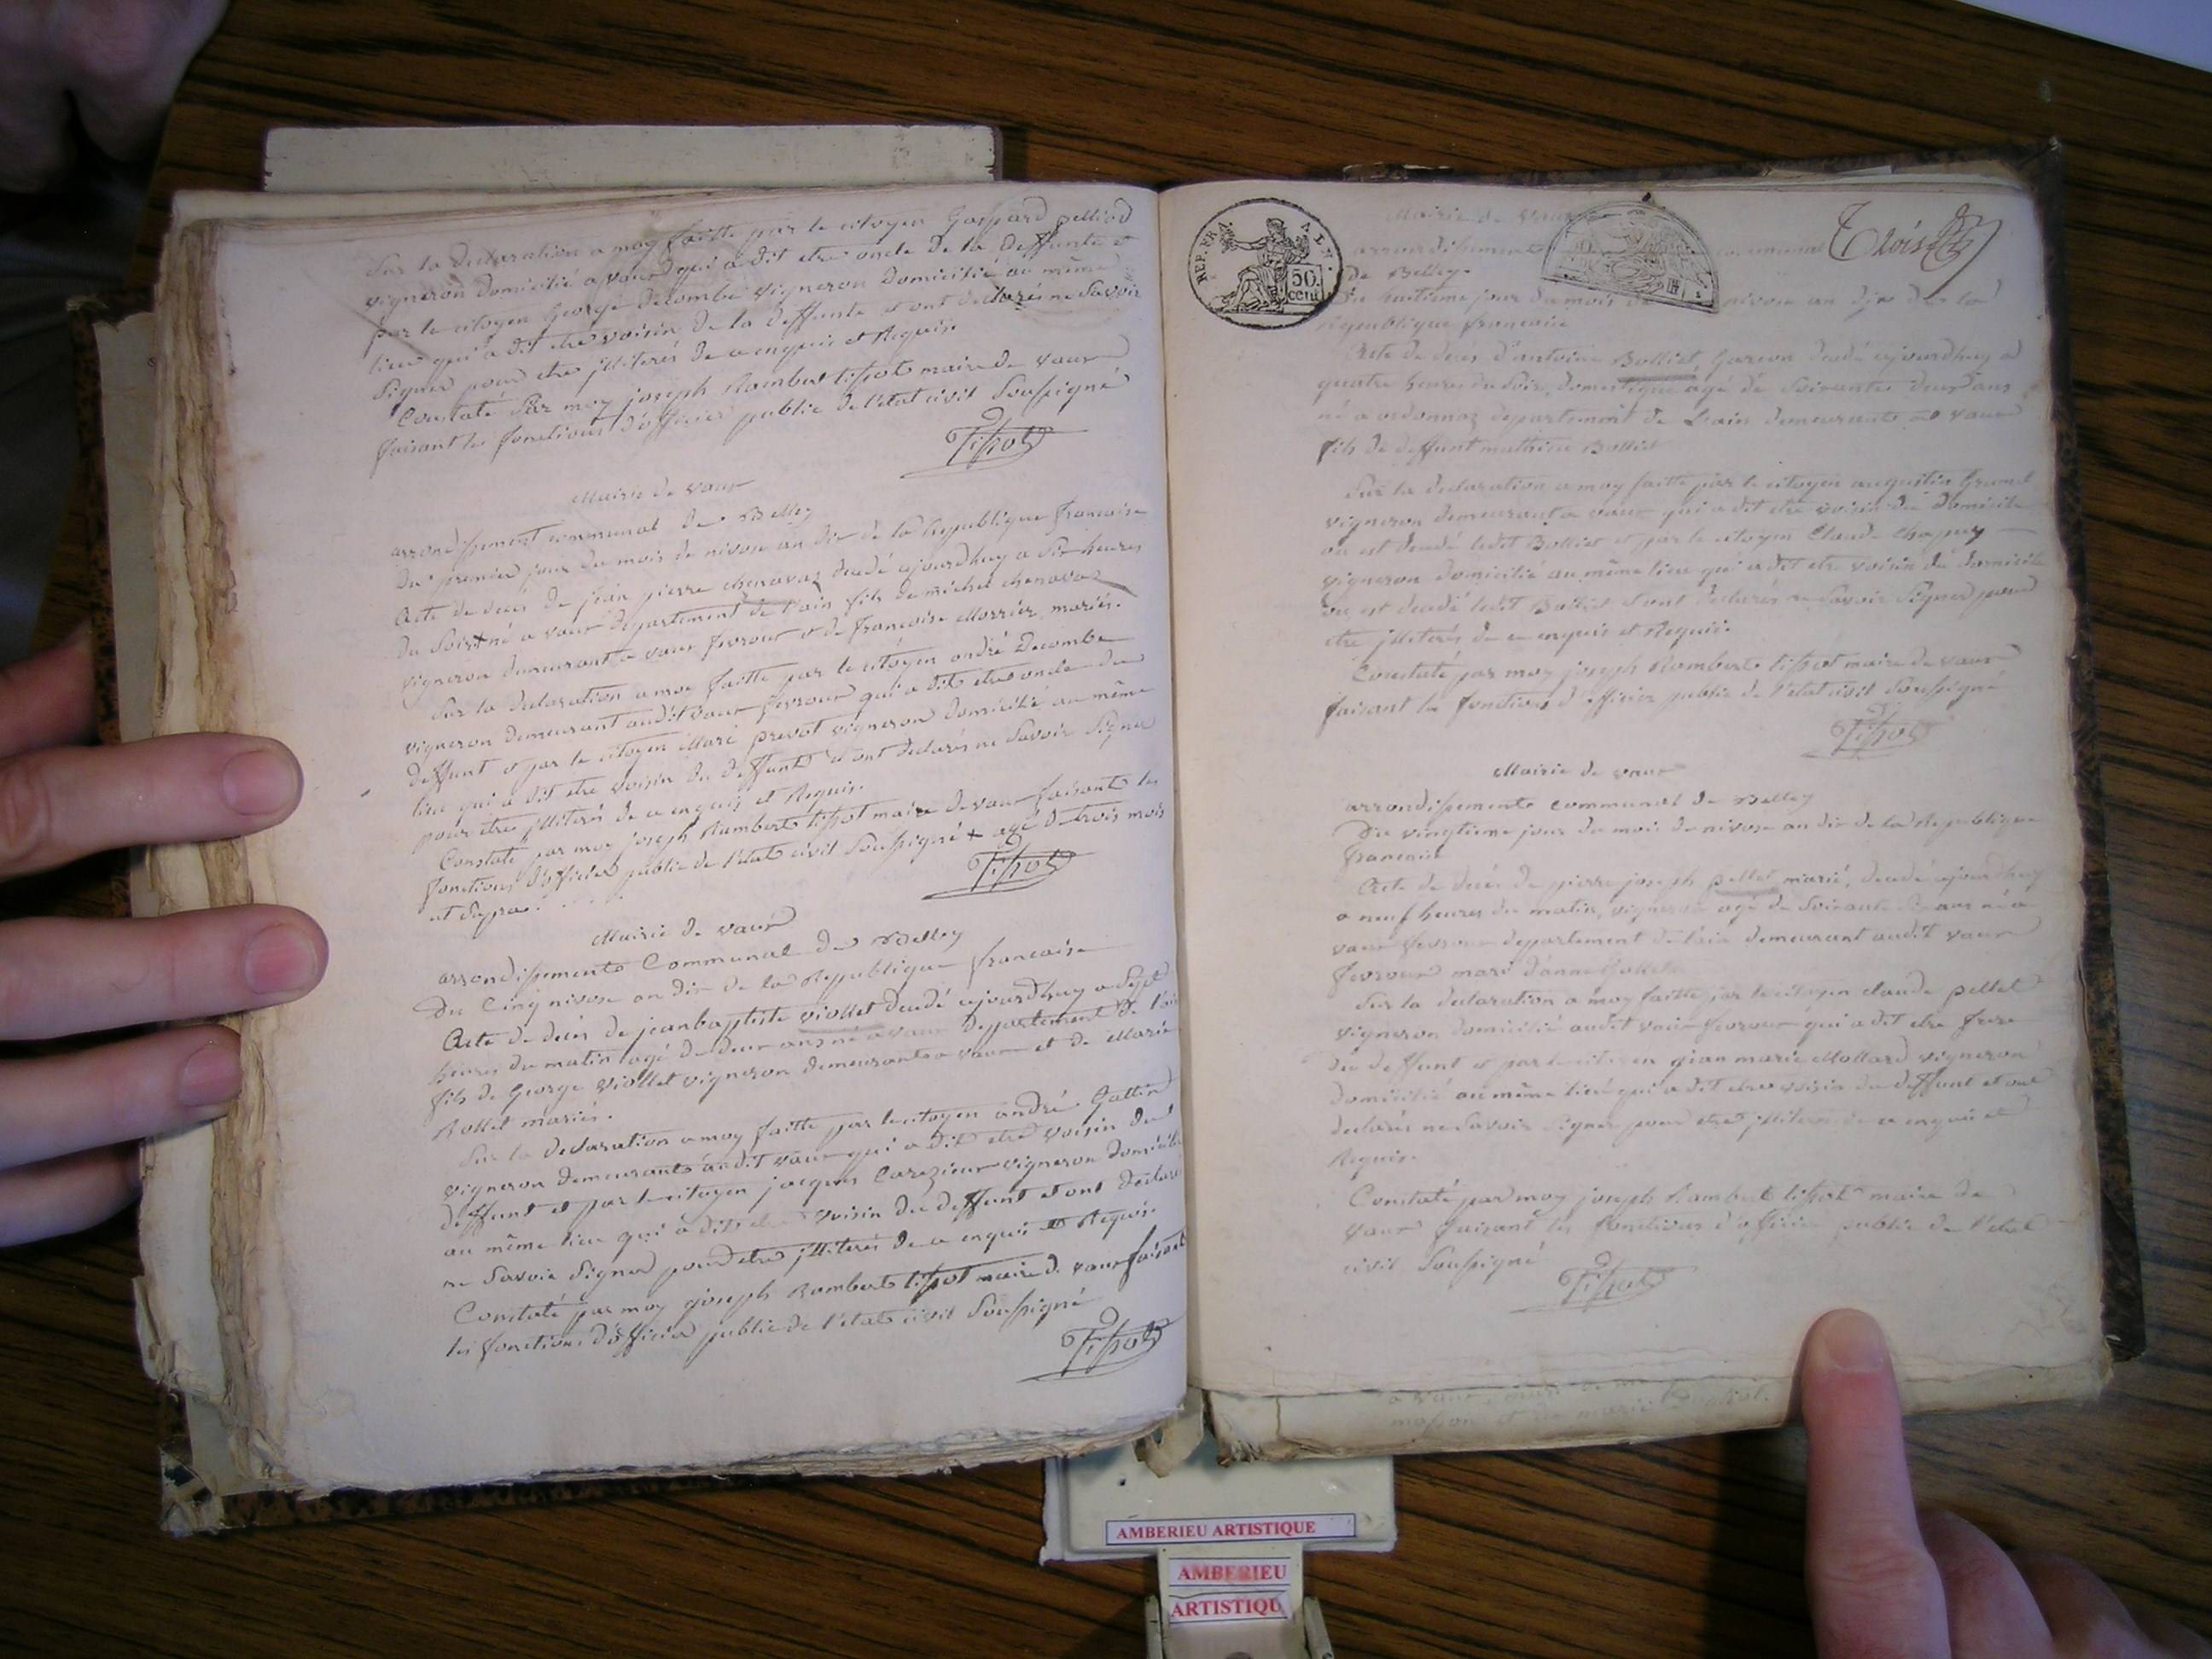 Sur la declaration a moy faitte par le citoyen Gaspard pelliod
vigneron domicilié a vaux qui a dit etre oncle de la deffunte et
par le citoyen George decombe vigneron domicilié au même
lieu qui a dit etre voisin de la deffunte et ont declarés ne savoir
signer pour etre jlliterés de ce enquis et Requis.
Constaté par moy joseph Rambert tissot maire de vaux
faisant les fonctions d'officier public de l'etat civil soussigné
Tissot
Mairie de vaux
arrondissement communal de Belley
Du premier jour du mois de nivose an dix de la Republique francaise
Acte de decés de jean pierre chenavaz decedé ajourdhuy a six heures
du soir + né a vaux departement de l'ain fils de michel chenavaz
vigneron demeurant a vaux fevroux et de francoise Morrier mariés.
Sur la declaration a moy faitte par le citoyen andré Decombe
vigneron demeurant audit vaux fevroux qui a dit etre oncle du
deffunt et par le citoyen Marc prevot vigneron domicilié au même
lieu qui a dit etre voisin du deffunt et ont declarés ne savoir signer
pour etre jlliterés de ce enquis et Requis.
Constaté par moy joseph Rambert tissot maire de vaux faisant les
fonctions d'officier public de l'etat civil soussigné + agé de trois mois
ut supra.
Tissot
Mairie de vaux
arrondissement Communal de Belley
Du Cinq nivose an dix de la Republique francaise
Acte de decés de jean baptiste viollet decedé ajourdhuy a sept
heures du matin agé de deux ans né a vaux departement de l'ain
fils de George viollet vigneron demeurant a vaux et de Marie
Rollet mariés.
Sur la declaration a moy faitte par le citoyen andré Gallin
vigneron demeurant audit vaux qui a dit etre voisin du
deffunt et par le citoyen jacques Carezieux vigneron domicilié
au même lieu qui a dit etre voisin du deffunt et ont declaré
ne savoir signer pour etre jlliterés de ce enquis et Requis.
Constaté par moy joseph Rambert tissot maire de vaux faisant
les fonctions d'officier public de l'etat civil soussigné
Tissot
REP. FRA.
50. cent
Mairie de vaux
arrondissement communal
de Belley.
Du huitieme jour du mois de nivose an dix de la
republique francaise
Acte de decés d'antoine Bolliet, Garcon decedé ajourdhuy a
quatre heures du soir, domestique agé de soixante deux ans
né a ordonnaz departement de L'ain demeurant a vaux
fils de deffunt mathieu Bolliet
Sur la declaration a moy faitte par le citoyen augustin
vigneron demeurant a vaux qui a dit etre voisin du domicile
ou est decedé ledit Bolliet et par le citoyen Claude chapuy
vigneron domicilié au même lieu qui a dit etre voisin du domicile
ou est decedé ledit Bolliet et ont declarés ne savoir signer pour
etre jlliterés de ce enquis et Requis.
Constaté par moy joseph Rambert tissot maire de vaux
faisant les fonctions d'officier public de l'etat civil soussigné
Tissot
Mairie de vaux
arrondissement communal de Belley
Du vingtieme jour du mois de nivose an dix de la Republique
francaise
Acte de decés de pierre joseph pellet marié, decedé ajourdhuy
a neuf heures du matin, vigneron agé de soixante ans né a
vaux fevroux departement de l'ain demeurant audit vaux
fevroux mari d'anne
Sur la declaration a moy faitte par le citoyen claude pellet
vigneron domicilié audit vaux fevroux qui a dit etre frere
du deffunt et par le citoyen jean marie Mollard vigneron
domicilié au même lieu qui a dit etre voisin du deffunt et ont
declarés ne savoir signer pour etre jlliterés de ce enquis et
Requis.
Constaté par moy joseph Rambert tissot maire de
vaux faisant les fonctions d'officier public de l'etat
civil soussigné
Tissot
AMBERIEU ARTISTIQUE
AMBERIEU
ARTISTIQU